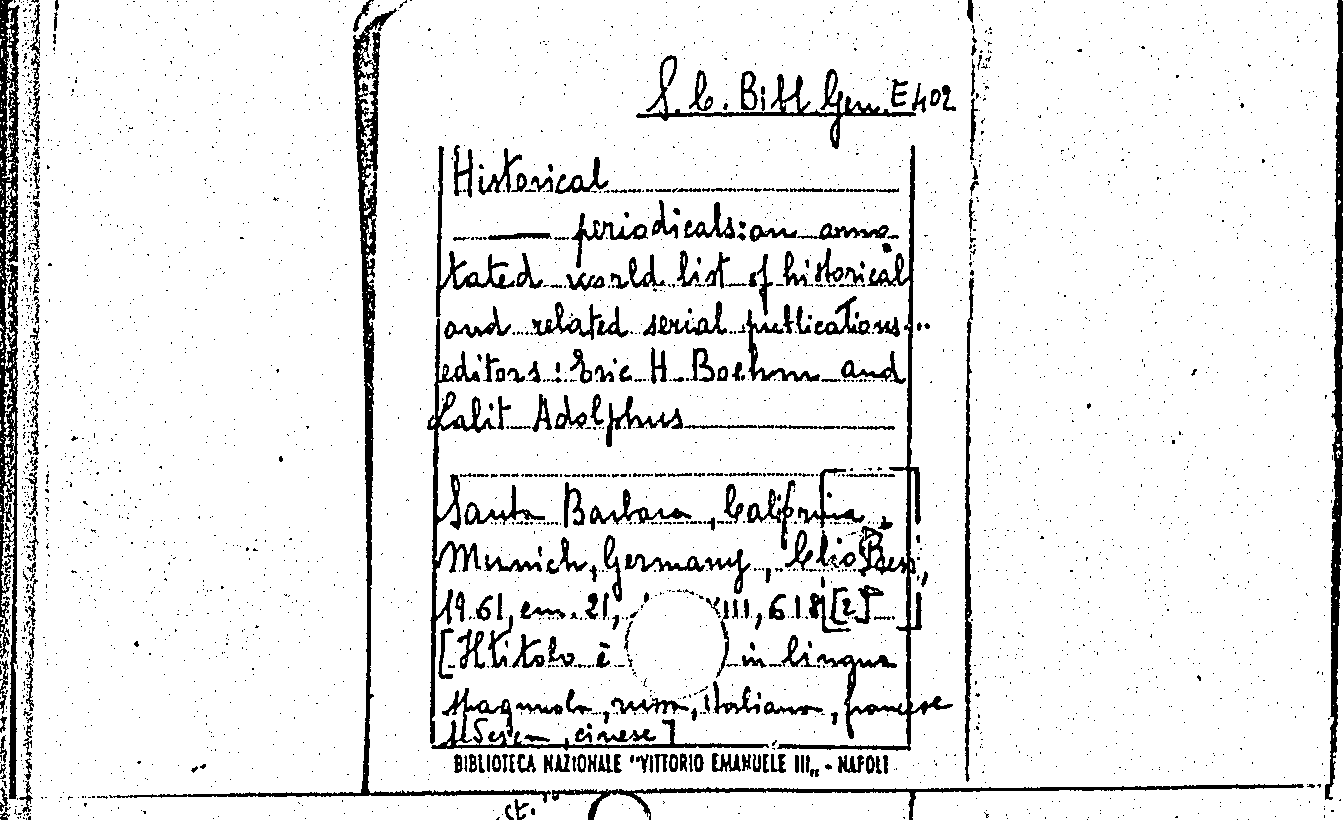 S.C. Bibl Gen. E 402
Historical
— periodicals: an anno
tated world list of historical
and related serial publications...
editors: Eric H. Boehm and
Lalit Adolphus
Santa Barbara, California,
Munich, Germany, Clio Press,
1961, cm. 21, XVIII, 618 [2]
[Il titolo è in lingua
spagnola, russa, italiana, francese
cinese]
BIBLIOTECA NAZIONALE "VITTORIO EMANUELE III„ - NAPOLI
st.